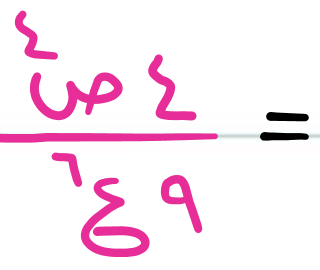 = ٤ ص٤
٩ ع٦